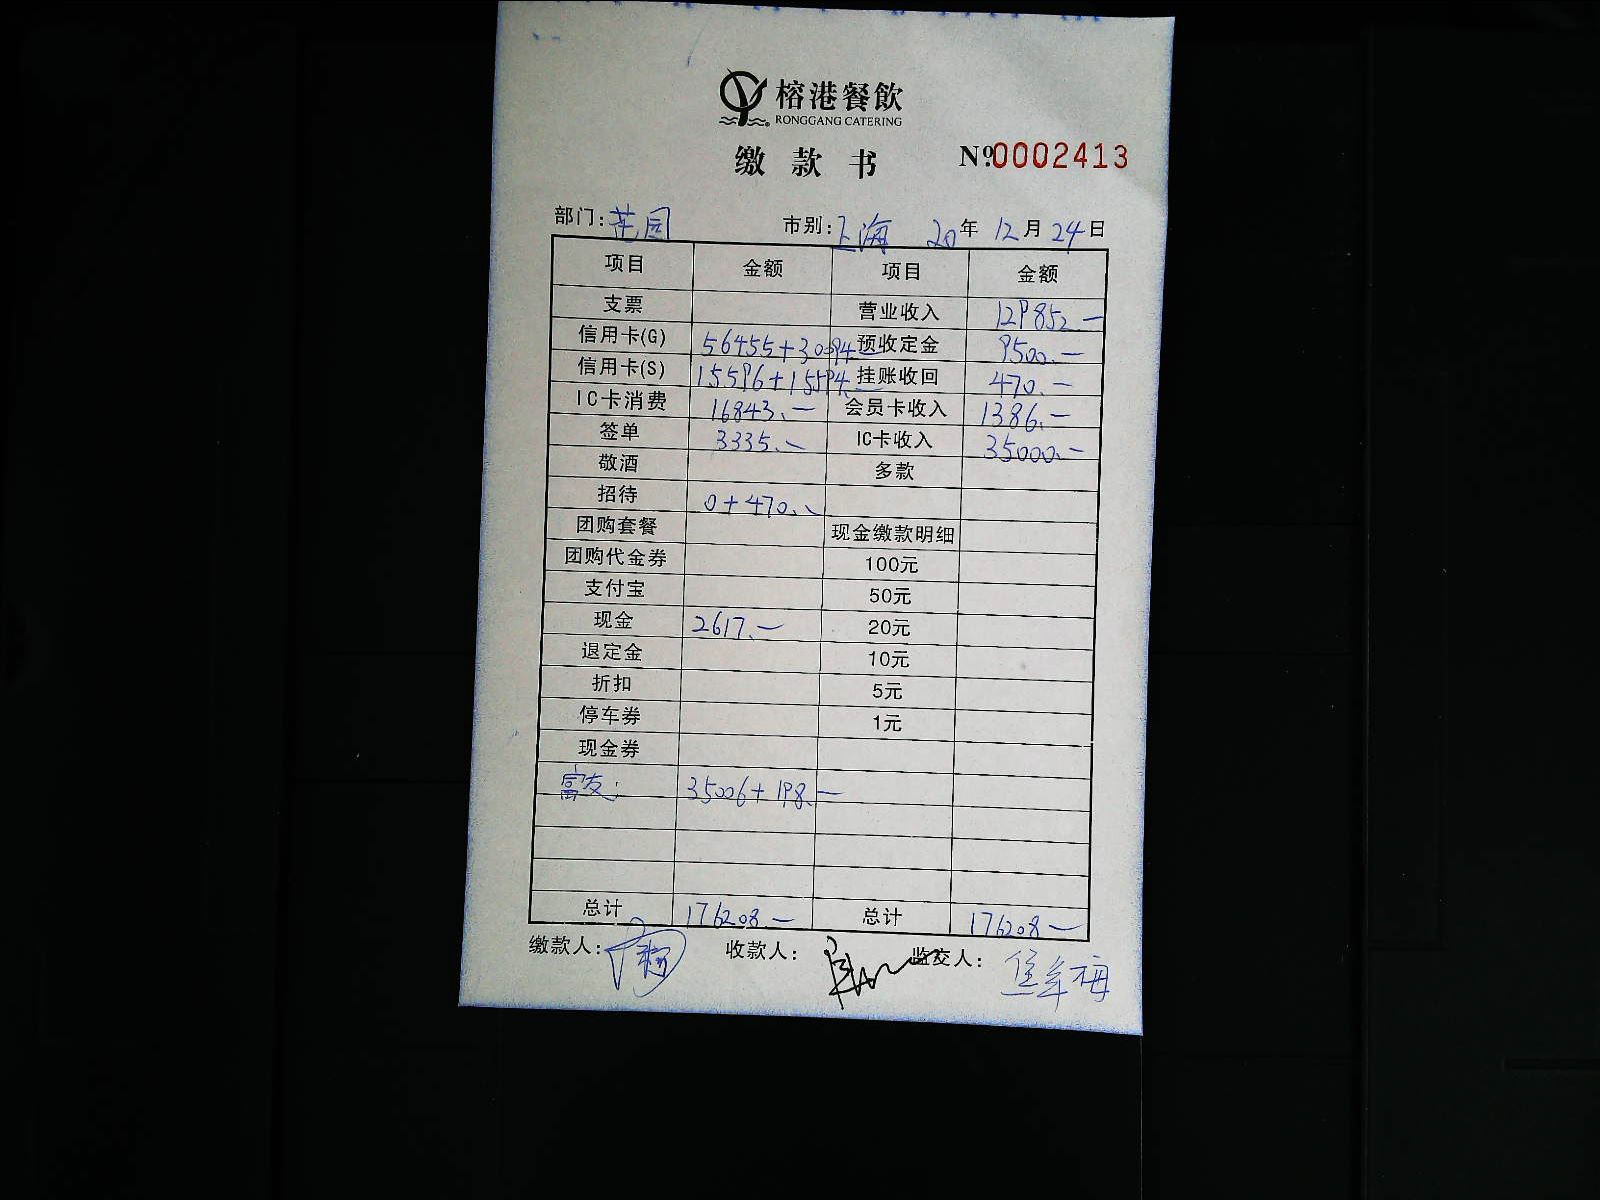 榕港餐飲
RONGGANG CATERING
缴款书 №0002413
部门: 花园 市别: 上海 20年 12月 24日
项目 金额 项目 金额
支票 营业收入 129852.—
信用卡(G) 56455+30094.— 预收定金 9500.—
信用卡(S) 15596+15594.— 挂账收回 470.—
IC卡消费 16843.— 会员卡收入 1386.—
签单 3335.— IC卡收入 35000.—
敬酒 多款
招待 0+470.—
团购套餐 现金缴款明细
团购代金券 100元
支付宝 50元
现金 2617.— 20元
退定金 10元
折扣 5元
停车券 1元
现金券
富友: 35006+198.—
总计 176208.— 总计 176208.—
缴款人: 收款人: 监交人: